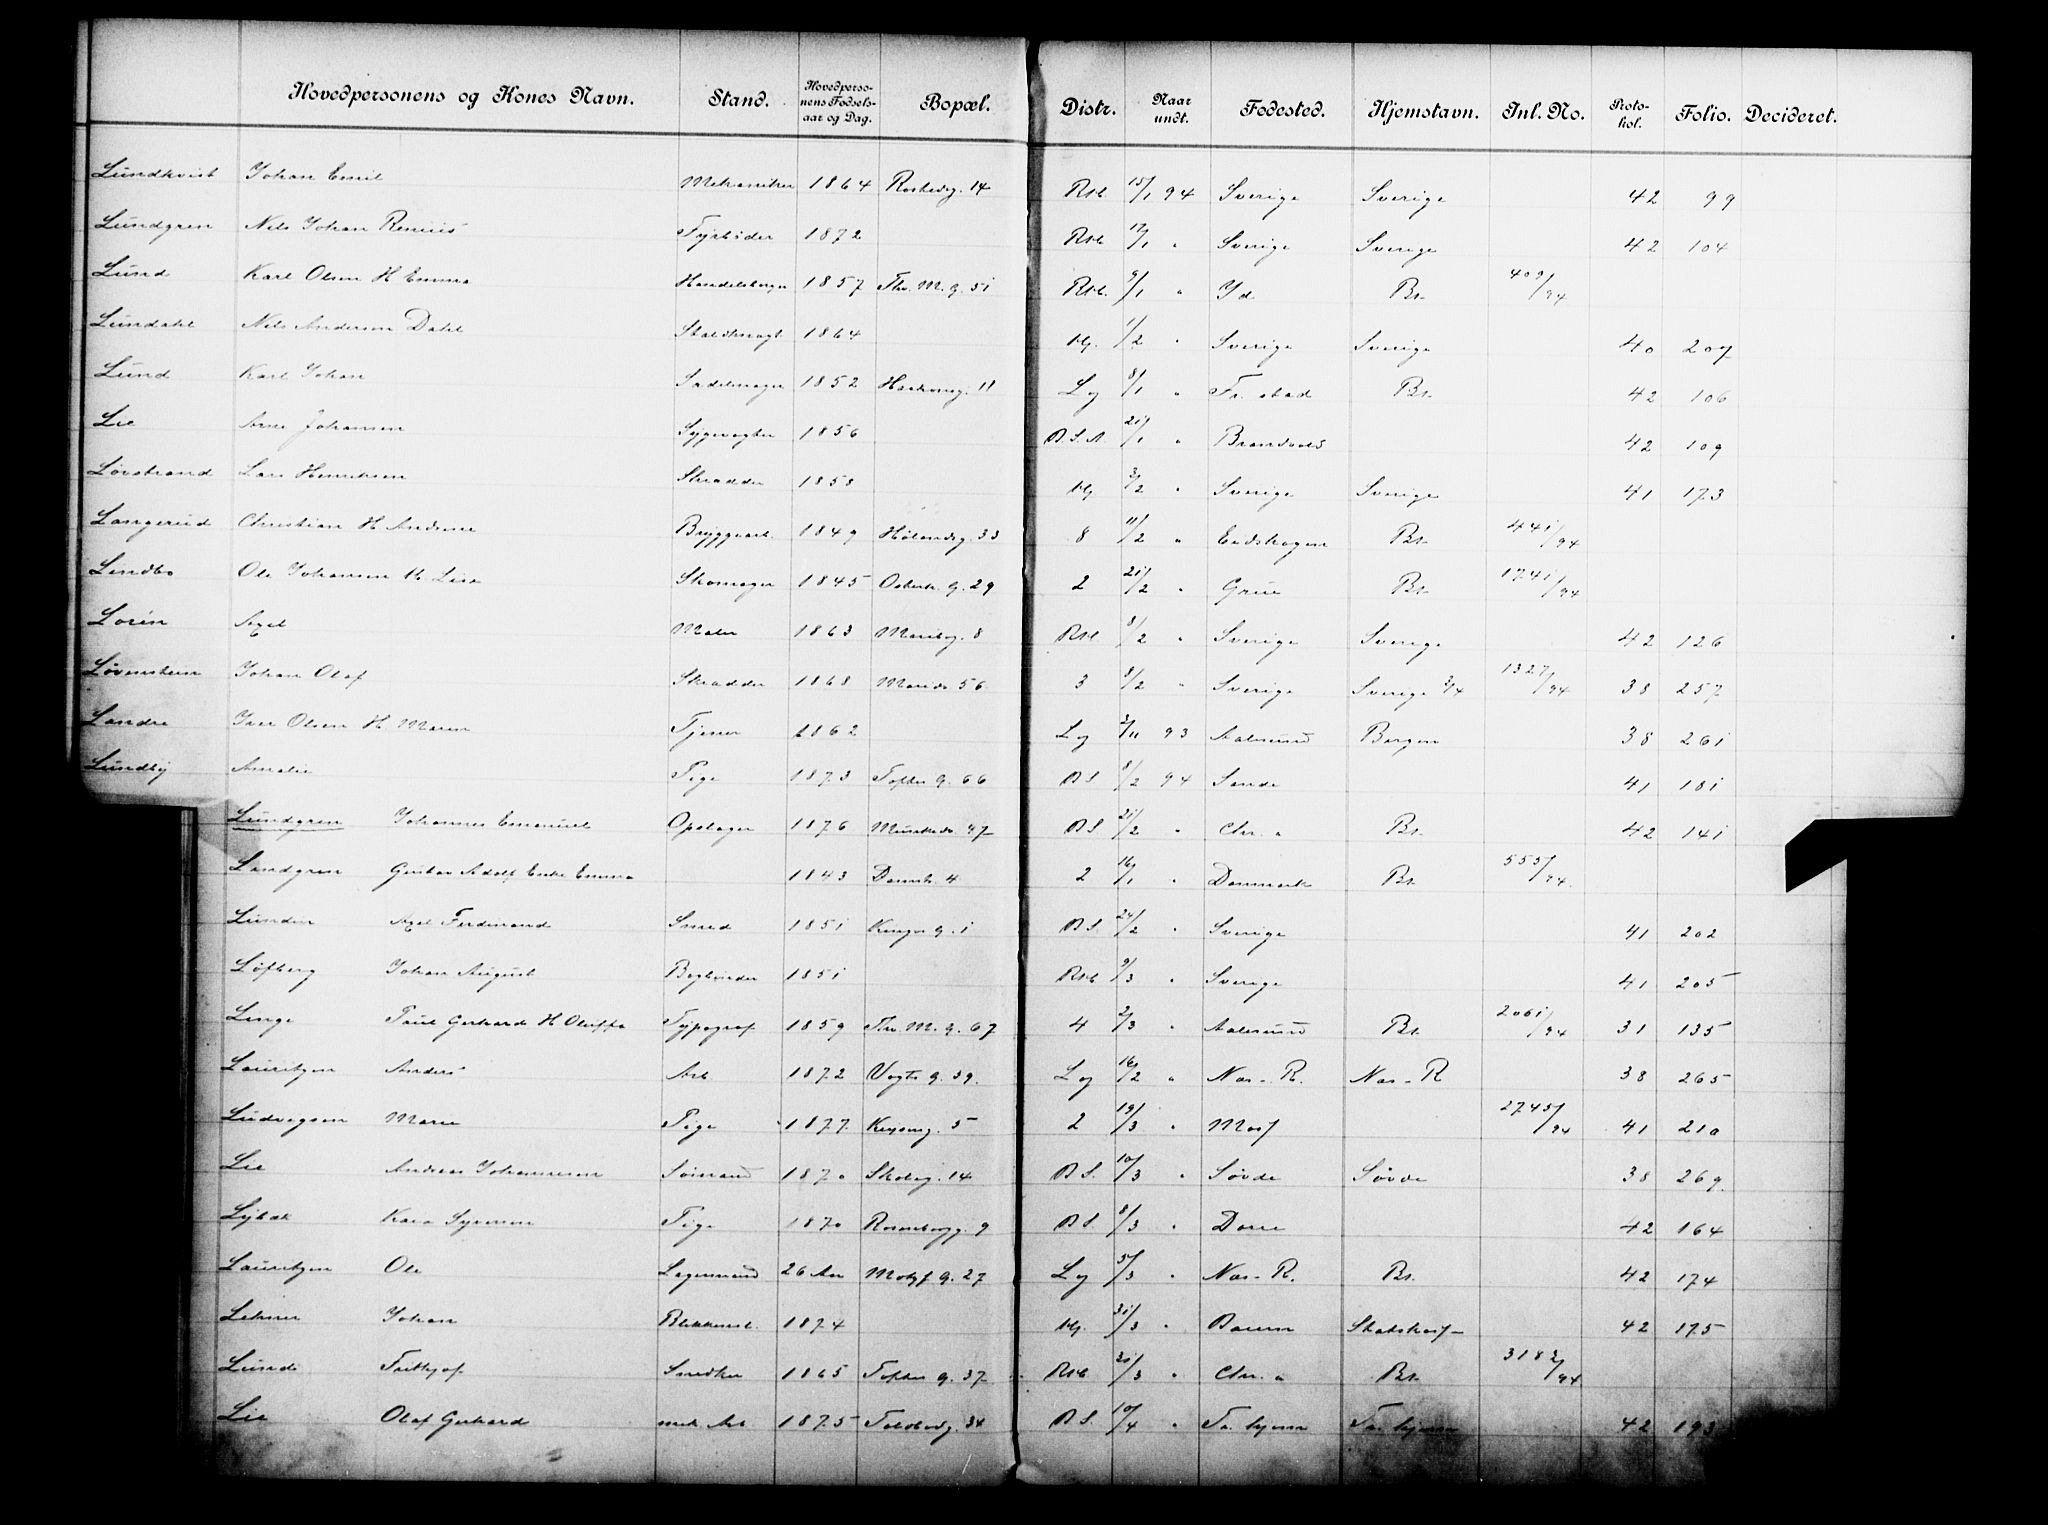 Hovedpersonens og Kones Navn. Stand. Hovedpersonens Fødselsaar og Dag. Bopæl. Distr. Naar undt. Fødested. Hjemstavn. Inl. No. Protokol. Folio. Decideret.
Lundkvist Johan Emil Mekaniker 1864 14 Rst. 15/1 94 Sverige Sverige 42 99
Lundgren Nils Johan Fyrbøder 1872 Rst. 17/1 " Sverige Sverige 42 104
Lund Karl Olsen H Emma 1857 Thv. M. g. 51 Rst. 9/1 " Id Bt. 409/94
Lundahl Nils Anderson Dahl Staldknægt 1864 Hj. 1/2 " Sverige Sverige 40 207
Lund Karl Johan Sadelmager 1852 11 Lg 8/1 " Fr. stad Bt. 42 106
Lie Arne Johansen Sygevogter 1856 B.S.A. 21/1 " Brandvold 42 109
Løvstrand Lars Henriksen Skrædder 1858 Hj 3/2 " Sverige Sverige 41 173
Langerud Christian H Andrine Bryggearb. 1849 Hølandsg. 33 8 11/2 " Eidskogen Bt. 441/94
Lindbo Ole Johansen H. Lise Skomager 1845 Osterh. g. 29 2 21/2 " Grue Bt. 1741/94
Lorin Axel Maler 1863 Maribg. 8 Rst. 8/2 " Sverige Sverige 42 126
Løvenstein Johan Olaf Skrædder 1868 56 3 8/2 " Sverige Sverige 1327/94 38 257
Landre Iver Olsen H Maren Tjener 1862 Lg 2/11 93 Aalesund Bergen 38 261
Lundby Amalie Pige 1873 Toftes g. 66 BS 8/2 94 Sande 41 181
Lundgren Johannes Emanuel Opslager 1876 47 BS 21/2 " Chr. a Bt. 42 141
Landgren Gustav Adolf Enke Emma 1843 Damstr. 4 2 16/1 " Danmark Bt. 555/94.
Lundin Axel Ferdinand Smed 1851 Kingos g. 1 BS. 24/2 " Sverige 41 202
Løfberg Johan August Bogbinder 1851 Rst. 9/3 " Sverige 41 205
Linge Paul Gerhard H Oluffa Typograf 1859 Thv. M. g. 67 4 2/3 " Aalesund Bt. 2061/94 31 135
Lauritzen Anders Arb 1872 Vogts g. 39. Lg 16/2 " Næs - R. Næs - R 38 265
Ludvigsen Marie Pige 1877. Keysersg. 5 2 19/3 " Moss 2745/94 41 210
Lie Andreas Johannesen Sømand 1870 Skoleg. 14 BS. 10/3 " Søvde Søvde 38 269.
Kari Syversen Pige 1870 Rosenborgg. 9 BS. 8/3 " Dovre 42 164
Lauritzen Ole Lagermand 26 Aar Motzf. g. 27 Lg 5/3 " Næs - R. Bt. 42 174
Johan Blikkensl. 1874 Hj. 31/3 " Bærum 42 175
Lunde Frithjof Snedker 1865 Toftes g. 37 Rst. 31/3 " Chr. a Bt. 3183/94
Lie Olaf Gerhard mek Arb 1875 34 BS. 10/4 " Tr. hjem Tr. hjem 42 193